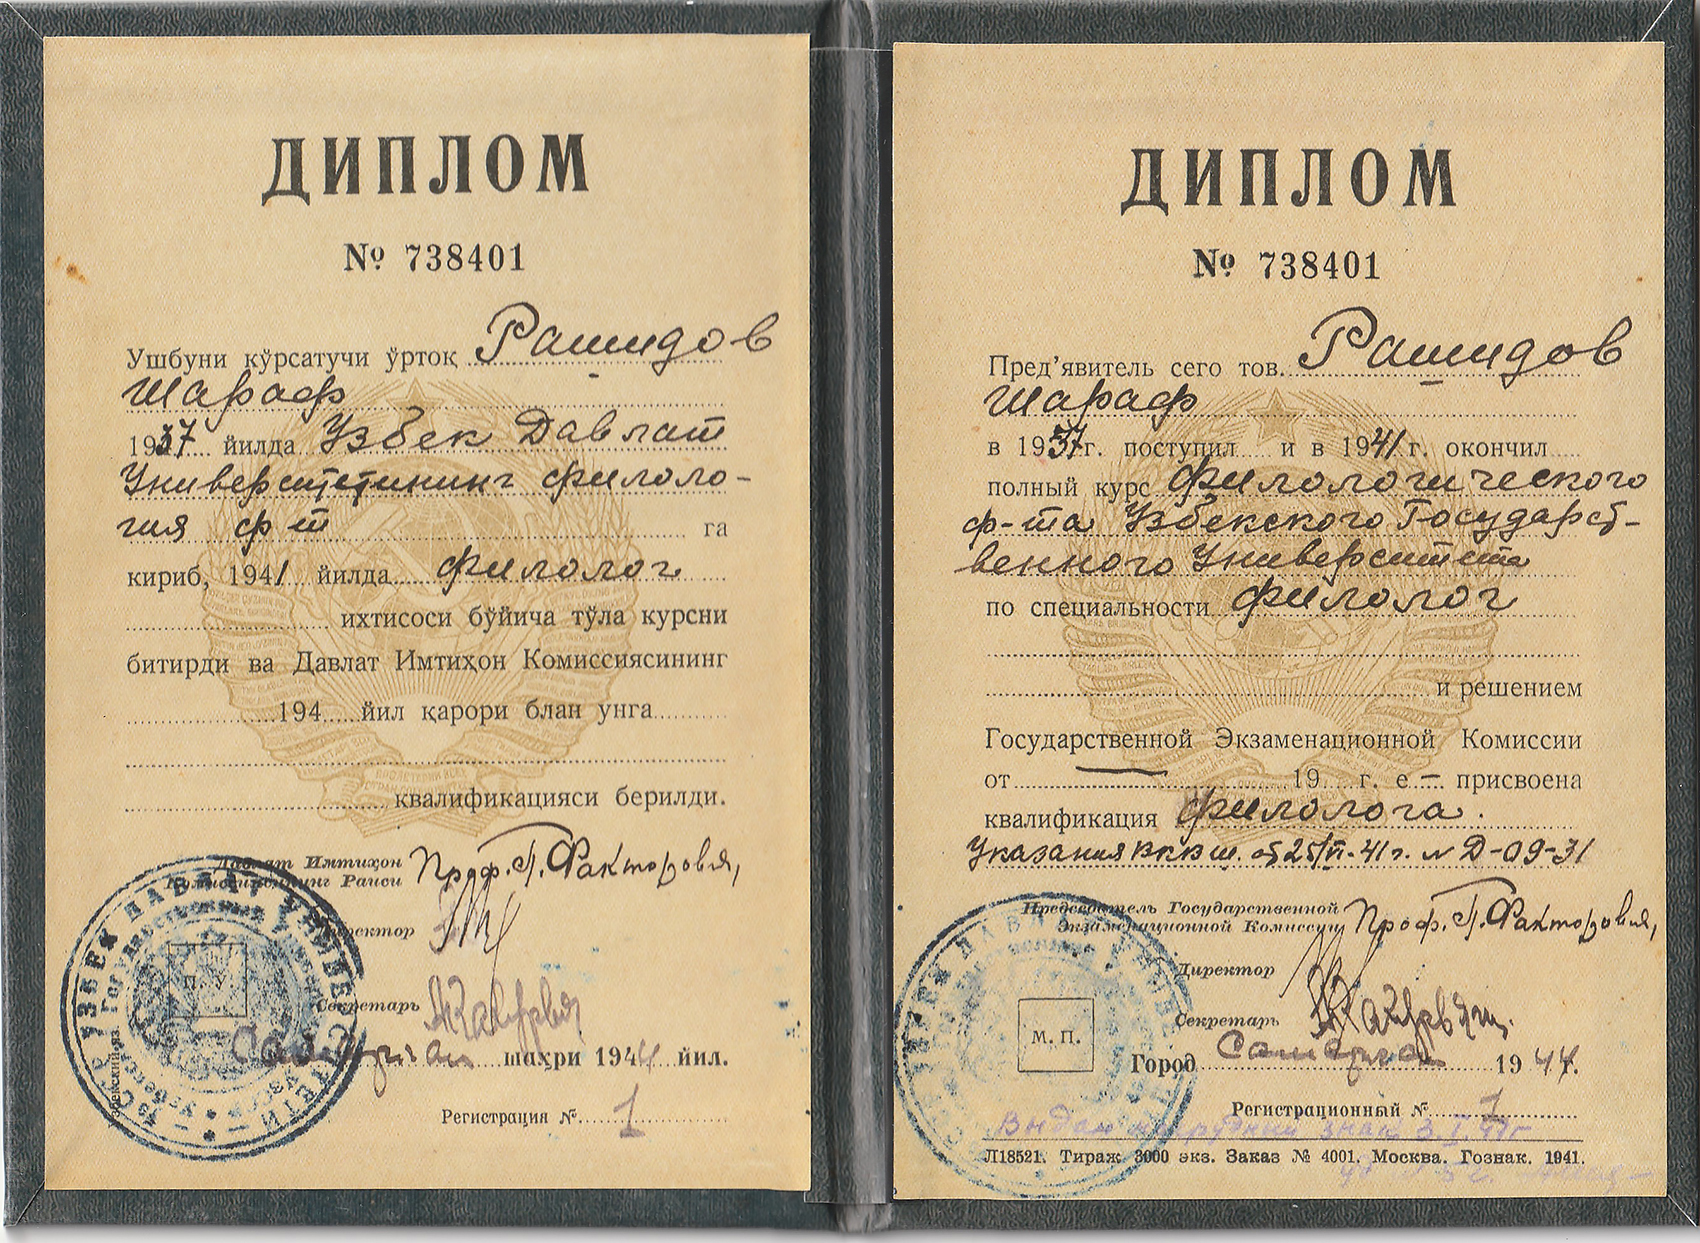 ДИПЛОМ
№ 738401
Ушбуни кўрсатучи ўртоқ Рашидов
Шараф
1937 йилда Узбек Давлат
Университетининг филоло-
гия ф-т га
кириб, 1941 йилда филолог
ихтисоси бўйича тўла курсни
битирди ва Давлат Имтиҳон Комиссиясининг
194 йил қарори блан унга
квалификацияси берилди.
Давлат Имтиҳон
Комиссиясининг Раиси Проф. П. Факторович,
Директор
Секретарь
Самарқан шаҳри 1944 йил.
Регистрация № 1
ДИПЛОМ
№ 738401
Пред'явитель сего тов. Рашидов
Шараф
в 1937 г. поступил и в 1941 г. окончил
полный курс Филологического
ф-та Узбекского Государст-
венного Университета
по специальности филолог
и решением
Государственной Экзаменационной Комиссии
от — 19 г. е — присвоена
квалификация филолога.
Указания ВКВШ. от 25/VI-41 г. № Д-09-31
Председатель Государственной
Экзаменационной Комиссии Проф. П. Факторович,
Директор
Секретарь
М. П.
Город Самарқан 1944 г.
Регистрационный № 1
Выдан нагрудный знак 3.I.47г
Л18521. Тираж 3000 экз. Заказ № 4001. Москва. Гознак. 1941.